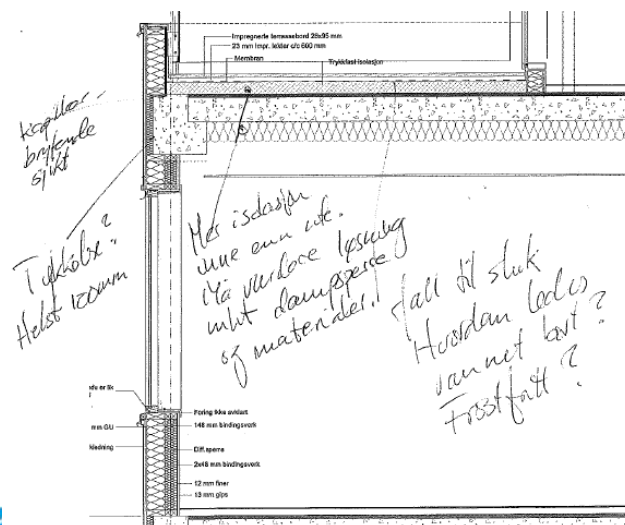 Impregnerte terrassebord 28x95 mm
23 mm impr. lekter c/c 600 mm
Membran
Trykkfast isolasjon
kapillær-
brytende
sjikt
Tykkelse?
Helst 100mm
Mer isolasjon
inne enn ute.
Må vurdere løsning
mht dampsperre
og materialer.
Fall til sluk
Hvordan ledes
vannet bort?
Frostfritt?
du er lik
mm GU
kledning
Foring ikke avklart
148 mm bindingsverk
Diff.sperre
2x48 mm bindingsverk
12 mm finer
13 mm gips